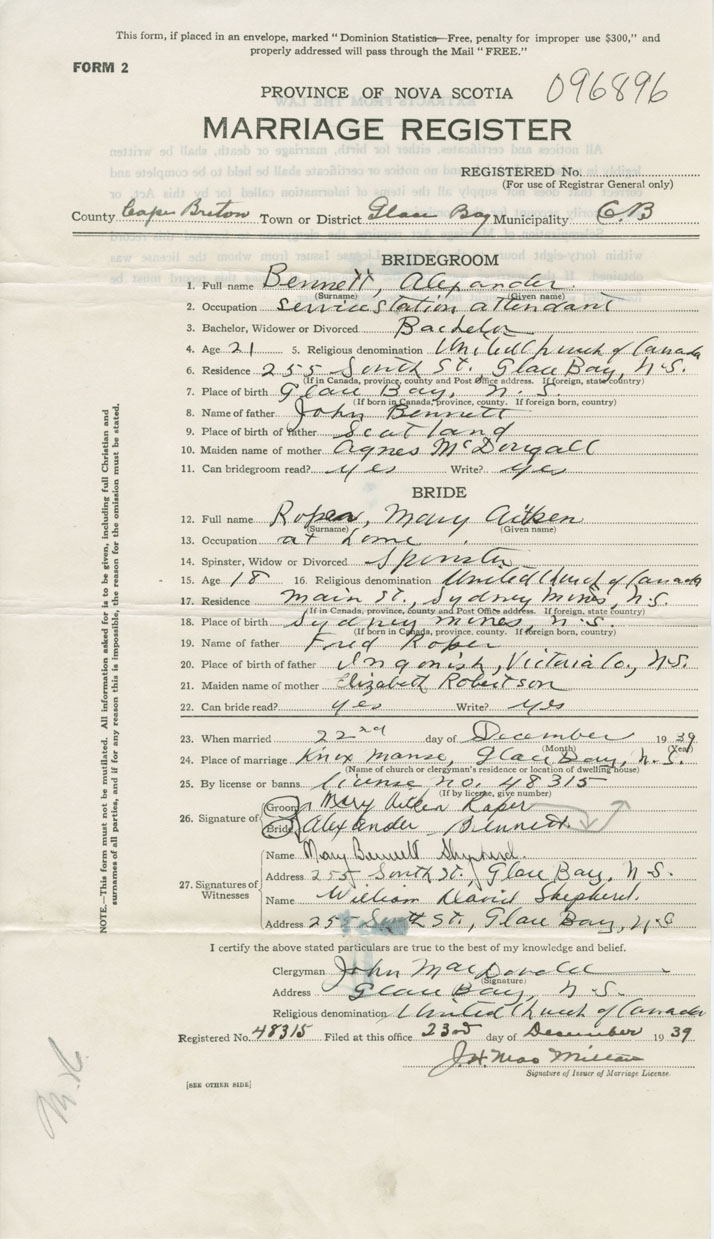 This form, if placed in an envelope, marked "Dominion Statistics—Free, penalty for improper use $300," and
properly addressed will pass through the Mail "FREE."
FORM 2
PROVINCE OF NOVA SCOTIA 096896
MARRIAGE REGISTER
REGISTERED No.
(For use of Registrar General only)
County Cape Breton Town or District Glace Bay Municipality C.B
BRIDEGROOM
1. Full name Bennett, Alexander
(Surname) (Given name)
2. Occupation service station attendant
3. Bachelor, Widower or Divorced Bachelor
4. Age 21 5. Religious denomination United Church of Canada
6. Residence 255 South St., Glace Bay, N.S.
(If in Canada, province, county and Post Office address. If foreign, state country)
7. Place of birth Glace Bay, N.S.
(If born in Canada, province, county. If foreign born, country)
8. Name of father John Bennett
9. Place of birth of father Scotland
10. Maiden name of mother Agnes McDougall
11. Can bridegroom read? yes Write? yes
BRIDE
12. Full name Roper, Mary Aitken
(Surname) (Given name)
13. Occupation at home
14. Spinster, Widow or Divorced Spinster
15. Age 18 16. Religious denomination United Church of Canada
17. Residence Main St., Sydney Mines, N.S.
(If in Canada, province, county and Post Office address. If foreign, state country)
18. Place of birth Sydney Mines, N.S.
(If born in Canada, province, county. If foreign born, country)
19. Name of father Fred Roper
20. Place of birth of father Ingonish, Victoria Co., N.S.
21. Maiden name of mother Elizabeth Robertson
22. Can bride read? yes Write? yes
23. When married 22nd day of December 1939
(Month) (Year)
24. Place of marriage Knox Manse, Glace Bay, N.S.
(Name of church or clergyman's residence or location of dwelling house)
25. By license or banns license no. 48315
(If by license, give number)
26. Signature of Groom Mary Aitken Roper
Bride Alexander Bennett
27. Signatures of Witnesses Name Mary Bennett Shepherd.
Address 255 South St., Glace Bay, N.S.
Name William David Shepherd.
Address 255 South St., Glace Bay, N.S
I certify the above stated particulars are true to the best of my knowledge and belief.
Clergyman John MacDonald
(Signature)
Address Glace Bay, N.S.
Religious denomination United Church of Canada
Registered No. 48315 Filed at this office 23rd day of December 1939
J.H. MacMillan
Signature of Issuer of Marriage License
[SEE OTHER SIDE]
NOTE.—This form must not be mutilated. All information asked for is to be given, including full Christian and
surnames of all parties, and if for any reason this is impossible, the reason for the omission must be stated.